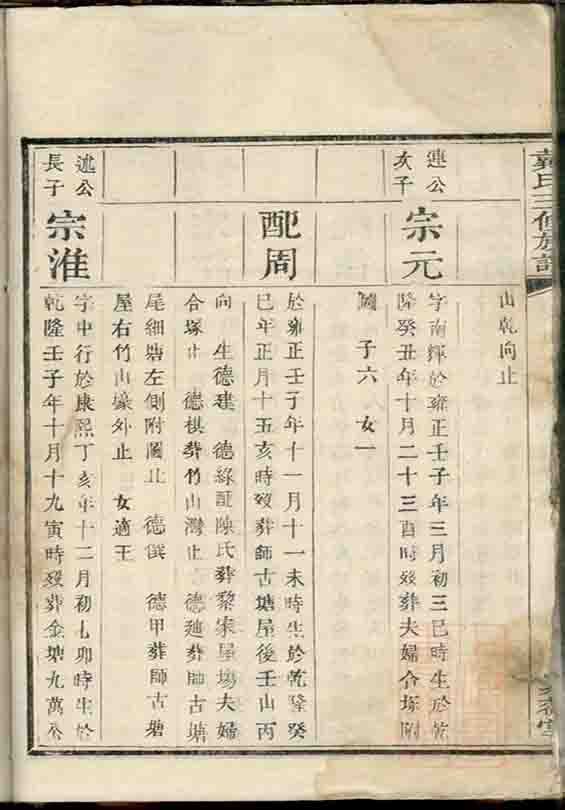 氏三修族譜
山乾向止
連公
次子
宗元
字南輝於雍正壬子年三月初三巳時生於乾
隆癸丑年十月二十三酉時歿葬夫婦合塚附
圖 子六 女一
配周
於雍正壬子年十一月十一未時生於乾隆癸
巳年正月十五亥時歿葬師古塘屋後壬山丙
向 生德建 德綠 陳氏葬黎家屋場夫婦
合塚止 德棋葬竹山灣止 德迪葬師古塘
尾細塘左側附圖止 德僎 德甲葬師古塘
屋右竹山壕外止 女適王
述公
長子
宗淮
字中行於康熙丁亥年十二月初七卯時生於
乾隆壬子年十月十九寅時歿葬金塘九萬公